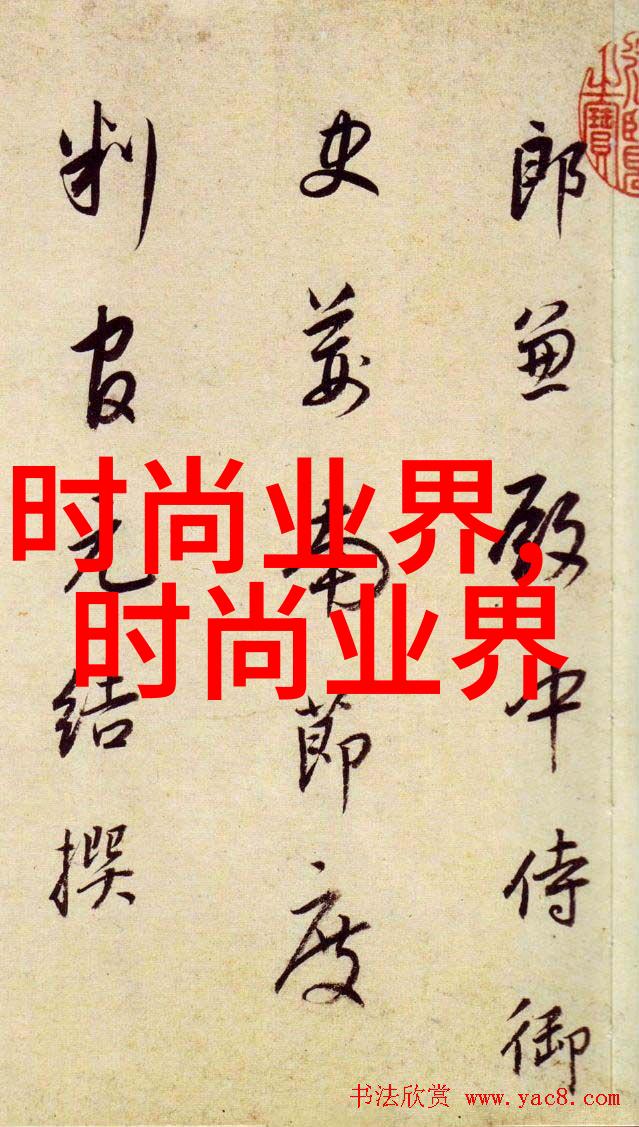 郎兼殿中侍御
史南節度
判官結撰
时尚业界,
时尚业界
书法欣赏 www.yac8.com